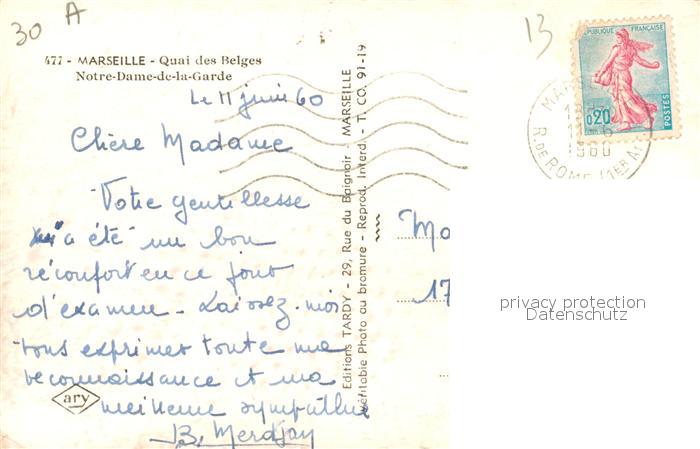 30 A
13
477 - MARSEILLE - Quai des Belges
Notre-Dame-de-la-Garde
Le 11 juin 60
Chère Madame
Votre gentillesse
m'a été un bon
réconfort en ce jour
d'examen. Laissez-moi
vous exprimer toute ma
reconnaissance et ma
meilleure sympathie
B. Merdjay
ary
Editions TARDY - 29, Rue du Baignoir - MARSEILLE
Véritable Photo au bromure - Reprod. Interd. - T. CO. 91-19
RÉPUBLIQUE FRANÇAISE
0,20
POSTES
MAR
1960
R. DE ROME (1ER ARR
Ma
17
privacy protection
Datenschutz